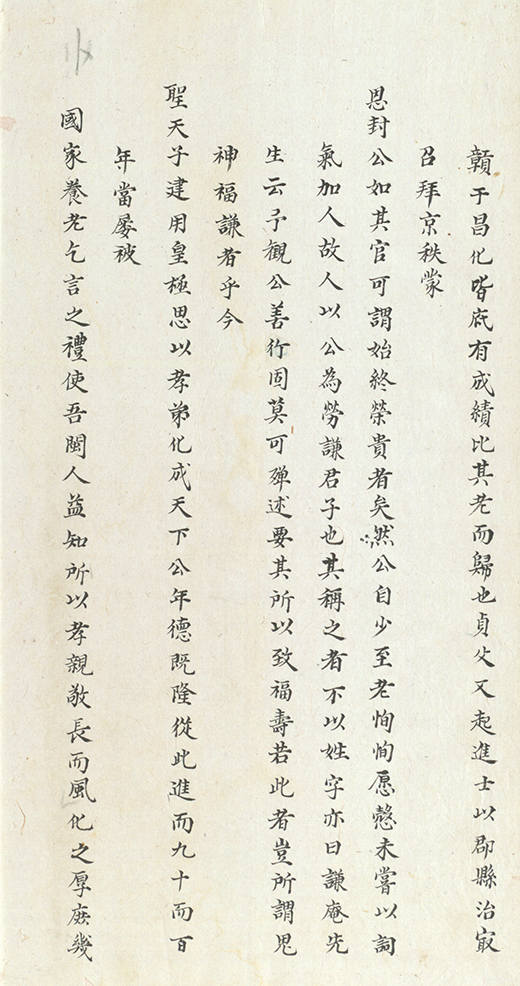 贛于昌化皆底有成績比其老而歸也貞父又起進士以郡縣治冣
召拜京秩蒙
恩封公如其官可謂始終榮貴者矣然公自少至老恂恂愿慤未嘗以詞
氣加人故人以公為勞謙君子也其稱之者不以姓字亦曰謙庵先
生云予觀公善行固莫可殫述要其所以致福壽若此者豈所謂鬼
神福謙者乎今
聖天子建用皇極思以孝弟化成天下公年德既隆從此進而九十而百
年當屡被
國家養老乞言之禮使吾閩人益知所以孝親敬長而風化之厚庶幾